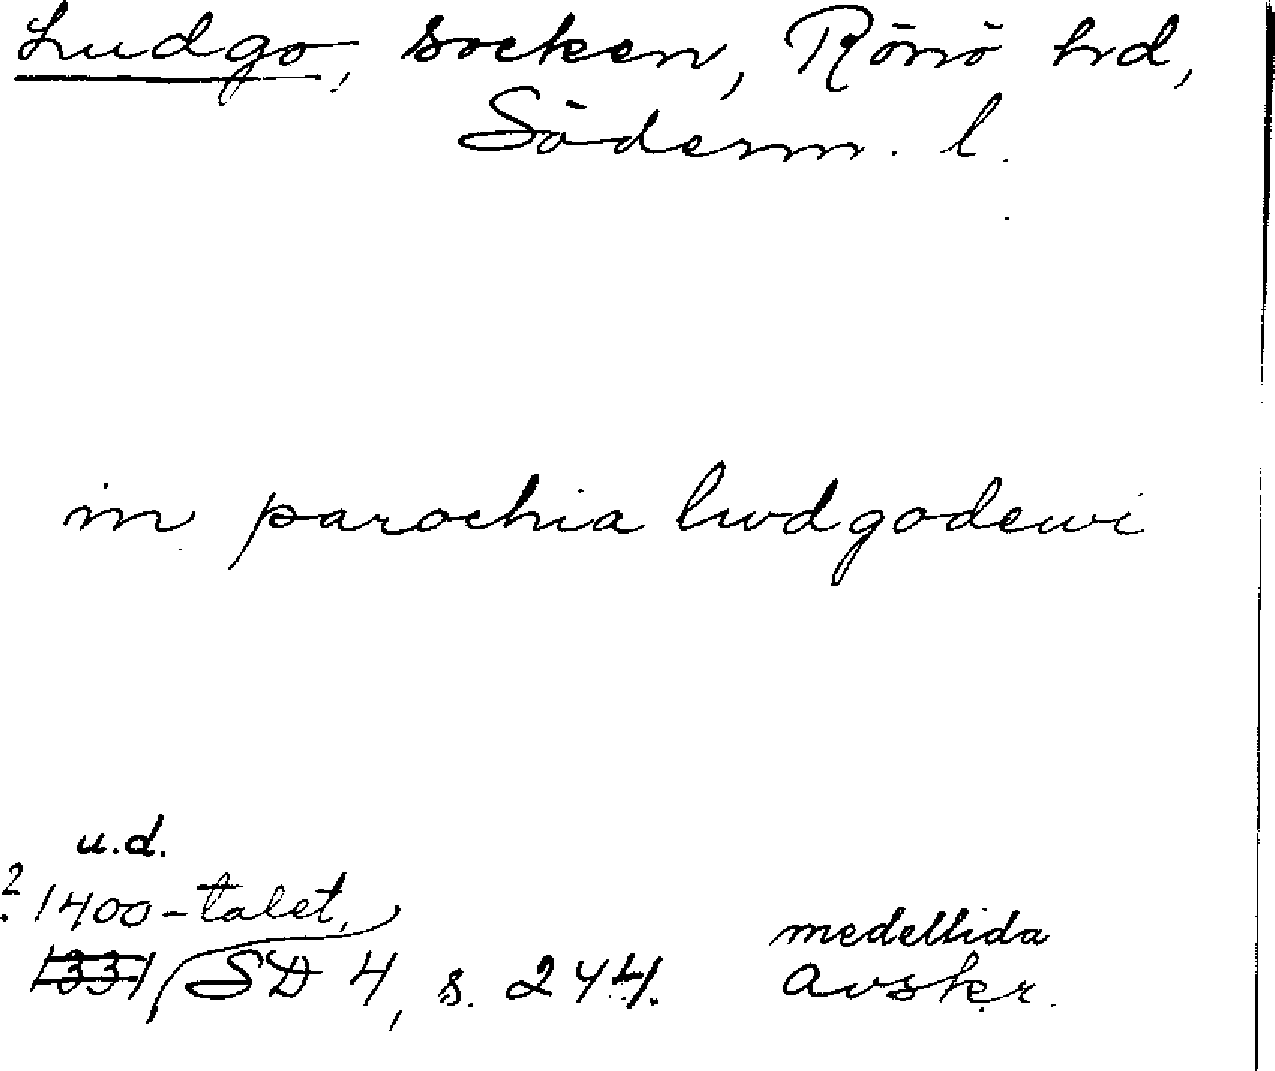 Ludgo, socken, Rönö hd,
Söderm. l.
in parochia lwdgodewi
u.d.
? 1400-talet,
1331 SD 4, s. 244. medeltida
avskr.